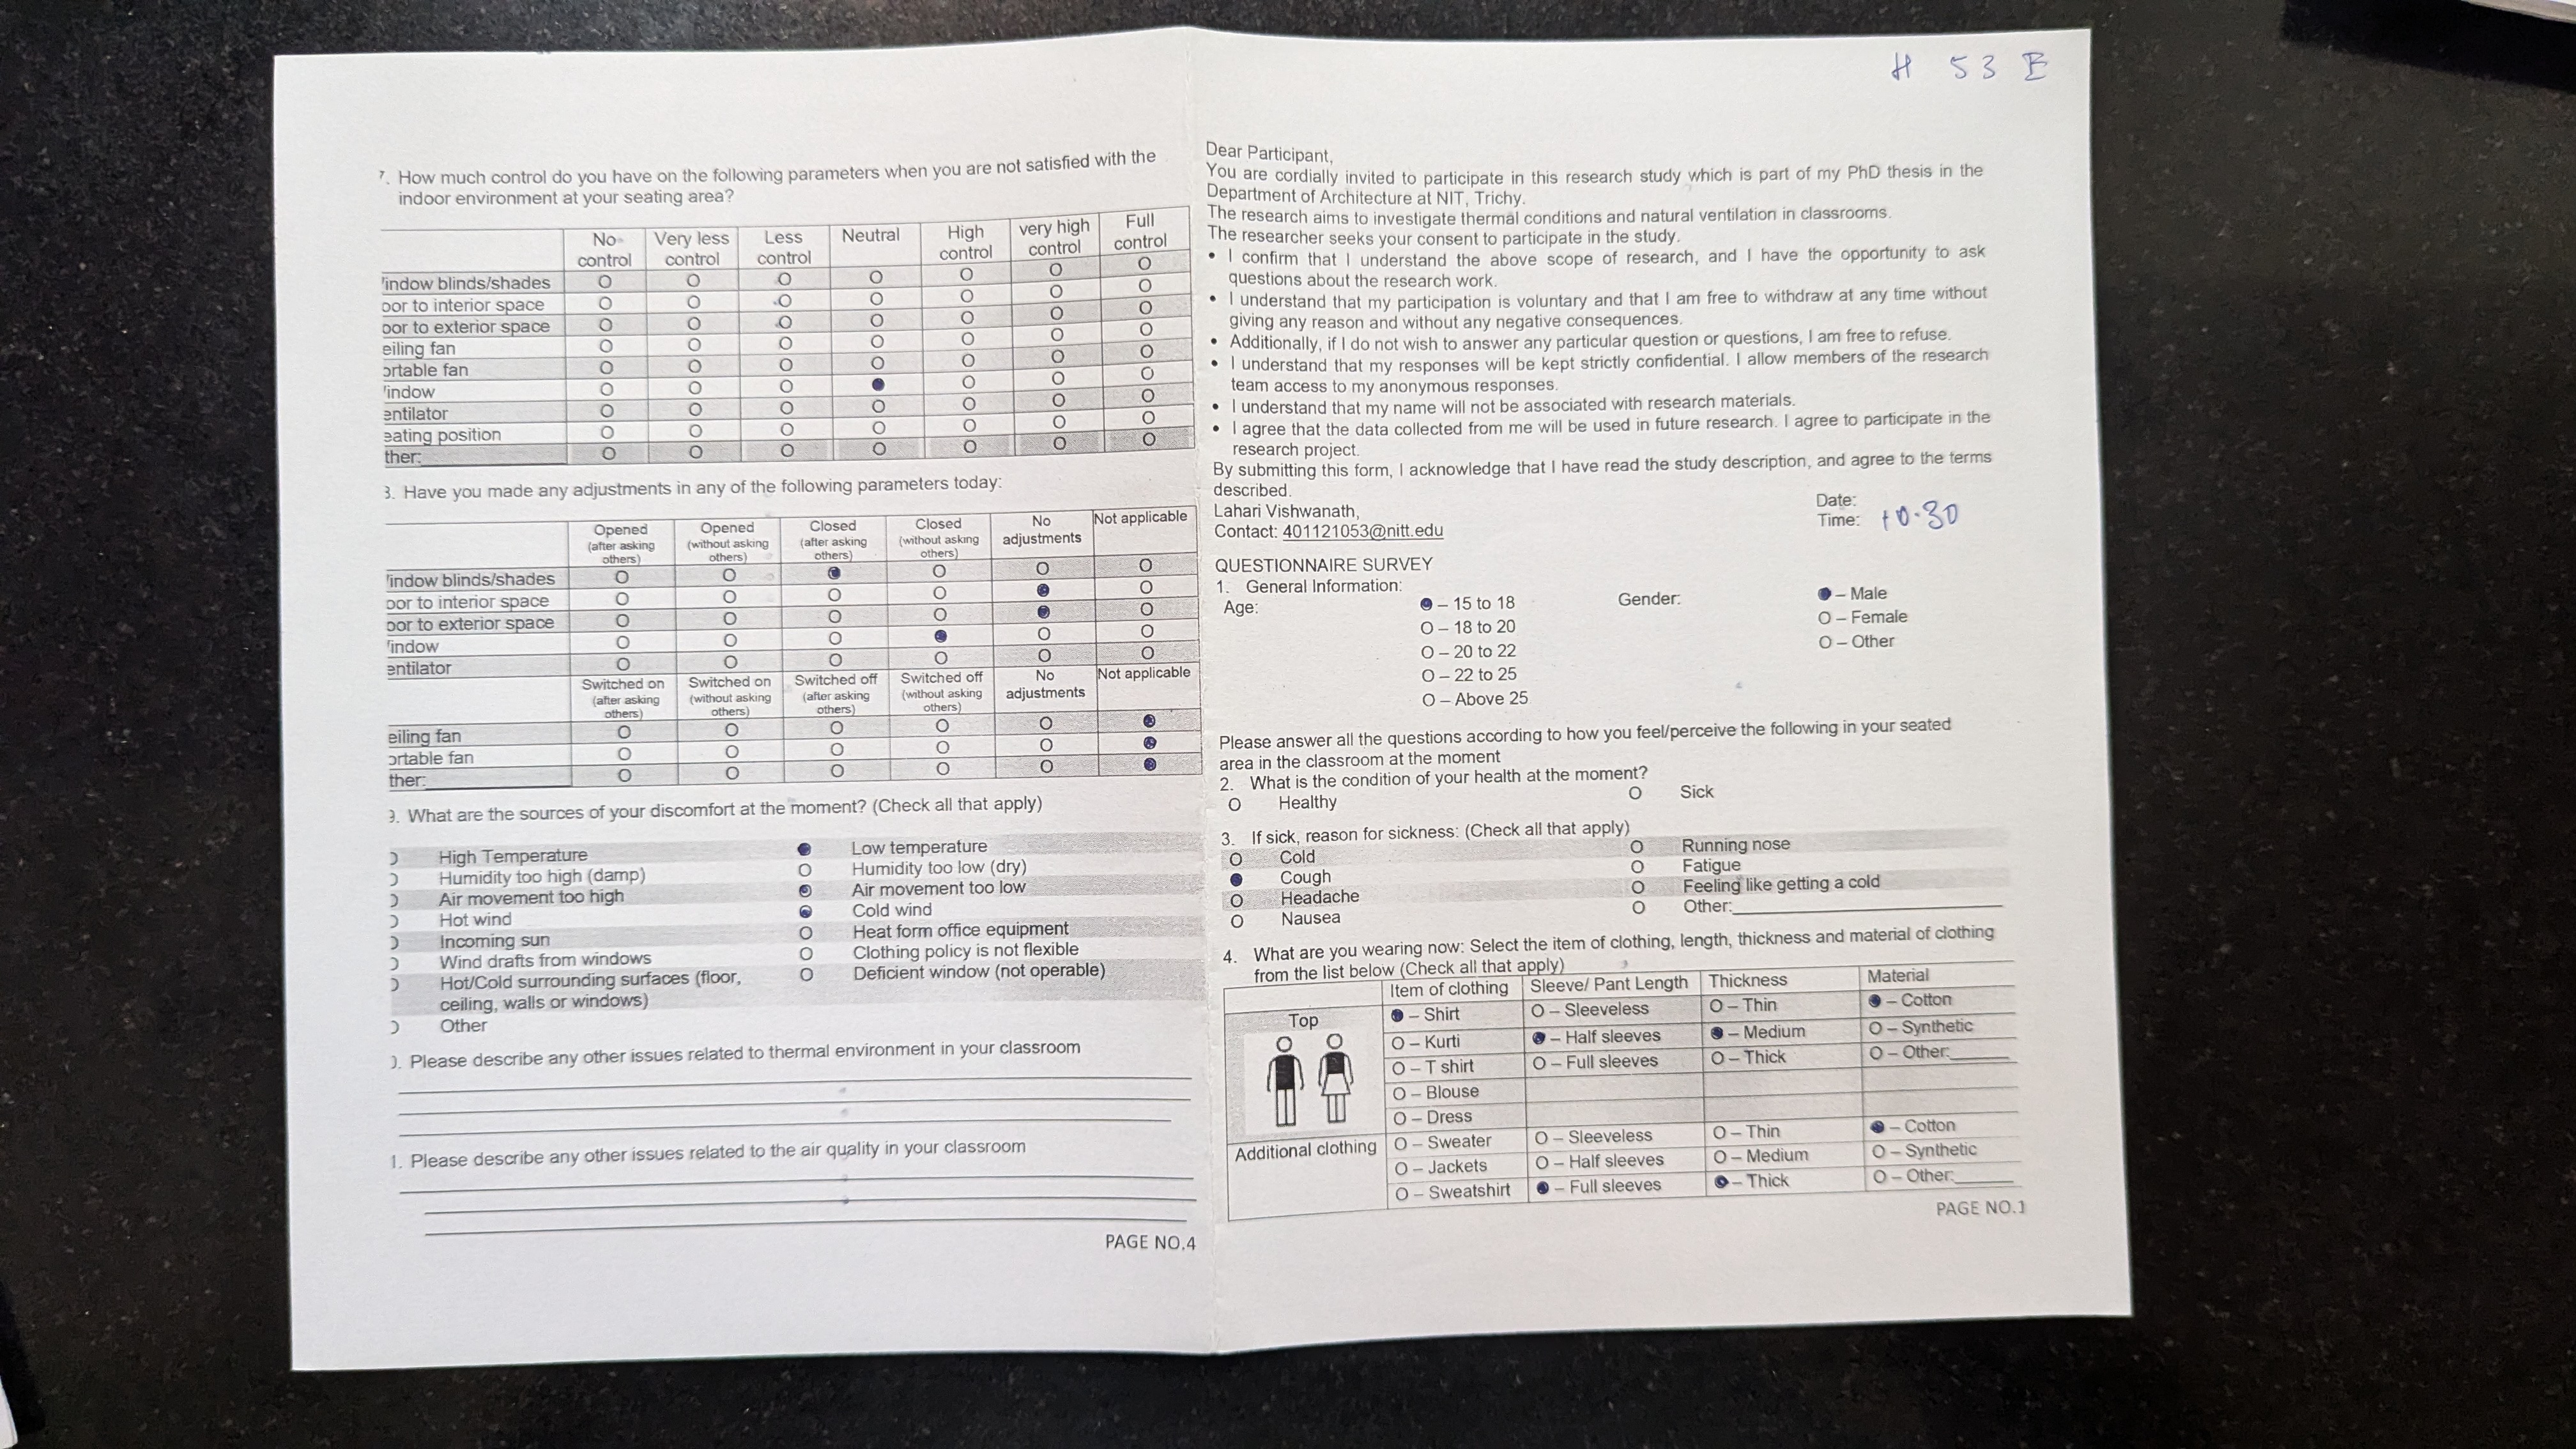 7. How much control do you have on the following parameters when you are not satisfied with the
indoor environment at your seating area?
No control Very less control Less control Neutral High control very high control Full control
indow blinds/shades O O O O O O O
oor to interior space O O O O O O O
oor to exterior space O O O O O O O
eiling fan O O O O O O O
ortable fan O O O O O O O
indow O O O ● O O O
entilator O O O O O O O
eating position O O O O O O O
ther: O O O O O O O
3. Have you made any adjustments in any of the following parameters today:
Opened (after asking others) Opened (without asking others) Closed (after asking others) Closed (without asking others) No adjustments Not applicable
indow blinds/shades O O ● O O O
oor to interior space O O O O ● O
oor to exterior space O O O O ● O
indow O O O ● O O
entilator O O O O O O
Switched on (after asking others) Switched on (without asking others) Switched off (after asking others) Switched off (without asking others) No adjustments Not applicable
eiling fan O O O O O ●
ortable fan O O O O O ●
ther: O O O O O ●
9. What are the sources of your discomfort at the moment? (Check all that apply)
High Temperature ● Low temperature
Humidity too high (damp) O Humidity too low (dry)
Air movement too high ● Air movement too low
Hot wind ● Cold wind
Incoming sun O Heat form office equipment
Wind drafts from windows O Clothing policy is not flexible
Hot/Cold surrounding surfaces (floor, O Deficient window (not operable)
ceiling, walls or windows)
Other
). Please describe any other issues related to thermal environment in your classroom
1. Please describe any other issues related to the air quality in your classroom
PAGE NO.4
H 53 E
Dear Participant,
You are cordially invited to participate in this research study which is part of my PhD thesis in the
Department of Architecture at NIT, Trichy.
The research aims to investigate thermal conditions and natural ventilation in classrooms.
The researcher seeks your consent to participate in the study.
• I confirm that I understand the above scope of research, and I have the opportunity to ask
questions about the research work.
• I understand that my participation is voluntary and that I am free to withdraw at any time without
giving any reason and without any negative consequences.
• Additionally, if I do not wish to answer any particular question or questions, I am free to refuse.
• I understand that my responses will be kept strictly confidential. I allow members of the research
team access to my anonymous responses.
• I understand that my name will not be associated with research materials.
• I agree that the data collected from me will be used in future research. I agree to participate in the
research project.
By submitting this form, I acknowledge that I have read the study description, and agree to the terms
described.
Lahari Vishwanath,
Contact: 401121053@nitt.edu
Date:
Time: 10.30
QUESTIONNAIRE SURVEY
1. General Information:
Age: ● – 15 to 18 Gender: ● – Male
O – 18 to 20 O – Female
O – 20 to 22 O – Other
O – 22 to 25
O – Above 25
Please answer all the questions according to how you feel/perceive the following in your seated
area in the classroom at the moment
2. What is the condition of your health at the moment?
O Healthy O Sick
3. If sick, reason for sickness: (Check all that apply)
O Cold O Running nose
● Cough O Fatigue
O Headache O Feeling like getting a cold
O Nausea O Other:
4. What are you wearing now: Select the item of clothing, length, thickness and material of clothing
from the list below (Check all that apply)
Item of clothing Sleeve/ Pant Length Thickness Material
Top ● – Shirt O – Sleeveless O – Thin ● – Cotton
O – Kurti ● – Half sleeves ● – Medium O – Synthetic
O – T shirt O – Full sleeves O – Thick O – Other:
O – Blouse
O – Dress
Additional clothing O – Sweater O – Sleeveless O – Thin ● – Cotton
O – Jackets O – Half sleeves O – Medium O – Synthetic
O – Sweatshirt ● – Full sleeves ● – Thick O – Other:
PAGE NO.1